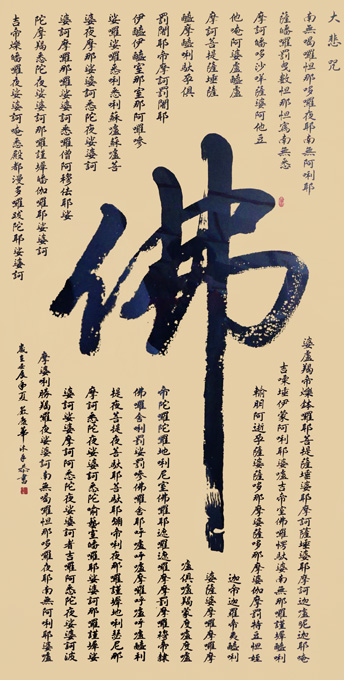 大悲咒
南無喝囉怛那哆囉夜耶南無阿唎耶
婆盧羯帝爍鉢囉耶菩提薩埵婆耶摩訶薩埵婆耶摩訶迦盧尼迦耶唵
薩皤囉罰曳數怛那怛寫南無悉
吉嘌埵伊蒙阿唎耶婆盧吉帝室佛囉楞馱婆南無那囉謹墀醯唎
摩訶皤哆沙咩薩婆阿他豆
輸朋阿逝孕薩婆薩哆那摩婆薩哆那摩婆伽摩罰特豆怛姪
他唵阿婆盧醯盧
迦帝迦羅帝夷醯唎
摩訶菩提薩埵薩
婆薩婆摩囉摩囉
醯摩醯唎馱孕俱
盧俱盧羯蒙度盧度盧
罰闍耶帝摩訶罰闍耶
帝陀囉陀囉地唎尼室佛囉耶遮囉遮囉摩摩罰摩囉穆帝隸
伊醯伊醯室那室那阿囉嘇
佛囉舍利罰娑罰嘇佛囉舍耶呼嚧呼嚧摩囉呼嚧呼嚧醯利
娑囉娑囉悉唎悉唎蘇嚧蘇嚧菩
提夜菩提夜菩馱夜菩馱夜彌帝唎夜那囉謹墀地利瑟尼那
婆夜摩那娑婆訶悉陀夜娑婆訶
摩訶悉陀夜娑婆訶悉陀喻藝室皤囉耶娑婆訶那囉謹墀娑
婆訶摩囉那囉娑婆訶悉囉僧阿穆佉耶娑
婆訶娑婆摩訶阿悉陀夜娑婆訶者吉囉阿悉陀夜娑婆訶波
陀摩羯悉陀夜娑婆訶那囉謹墀皤伽囉耶娑婆訶
摩婆利勝羯囉夜娑婆訶南無喝囉怛那哆囉夜耶南無阿唎耶婆嚧
吉帝爍皤囉夜娑婆訶唵悉殿都漫多囉跋陀耶娑婆訶
佛
歲在壬辰年夏
華沐手恭書